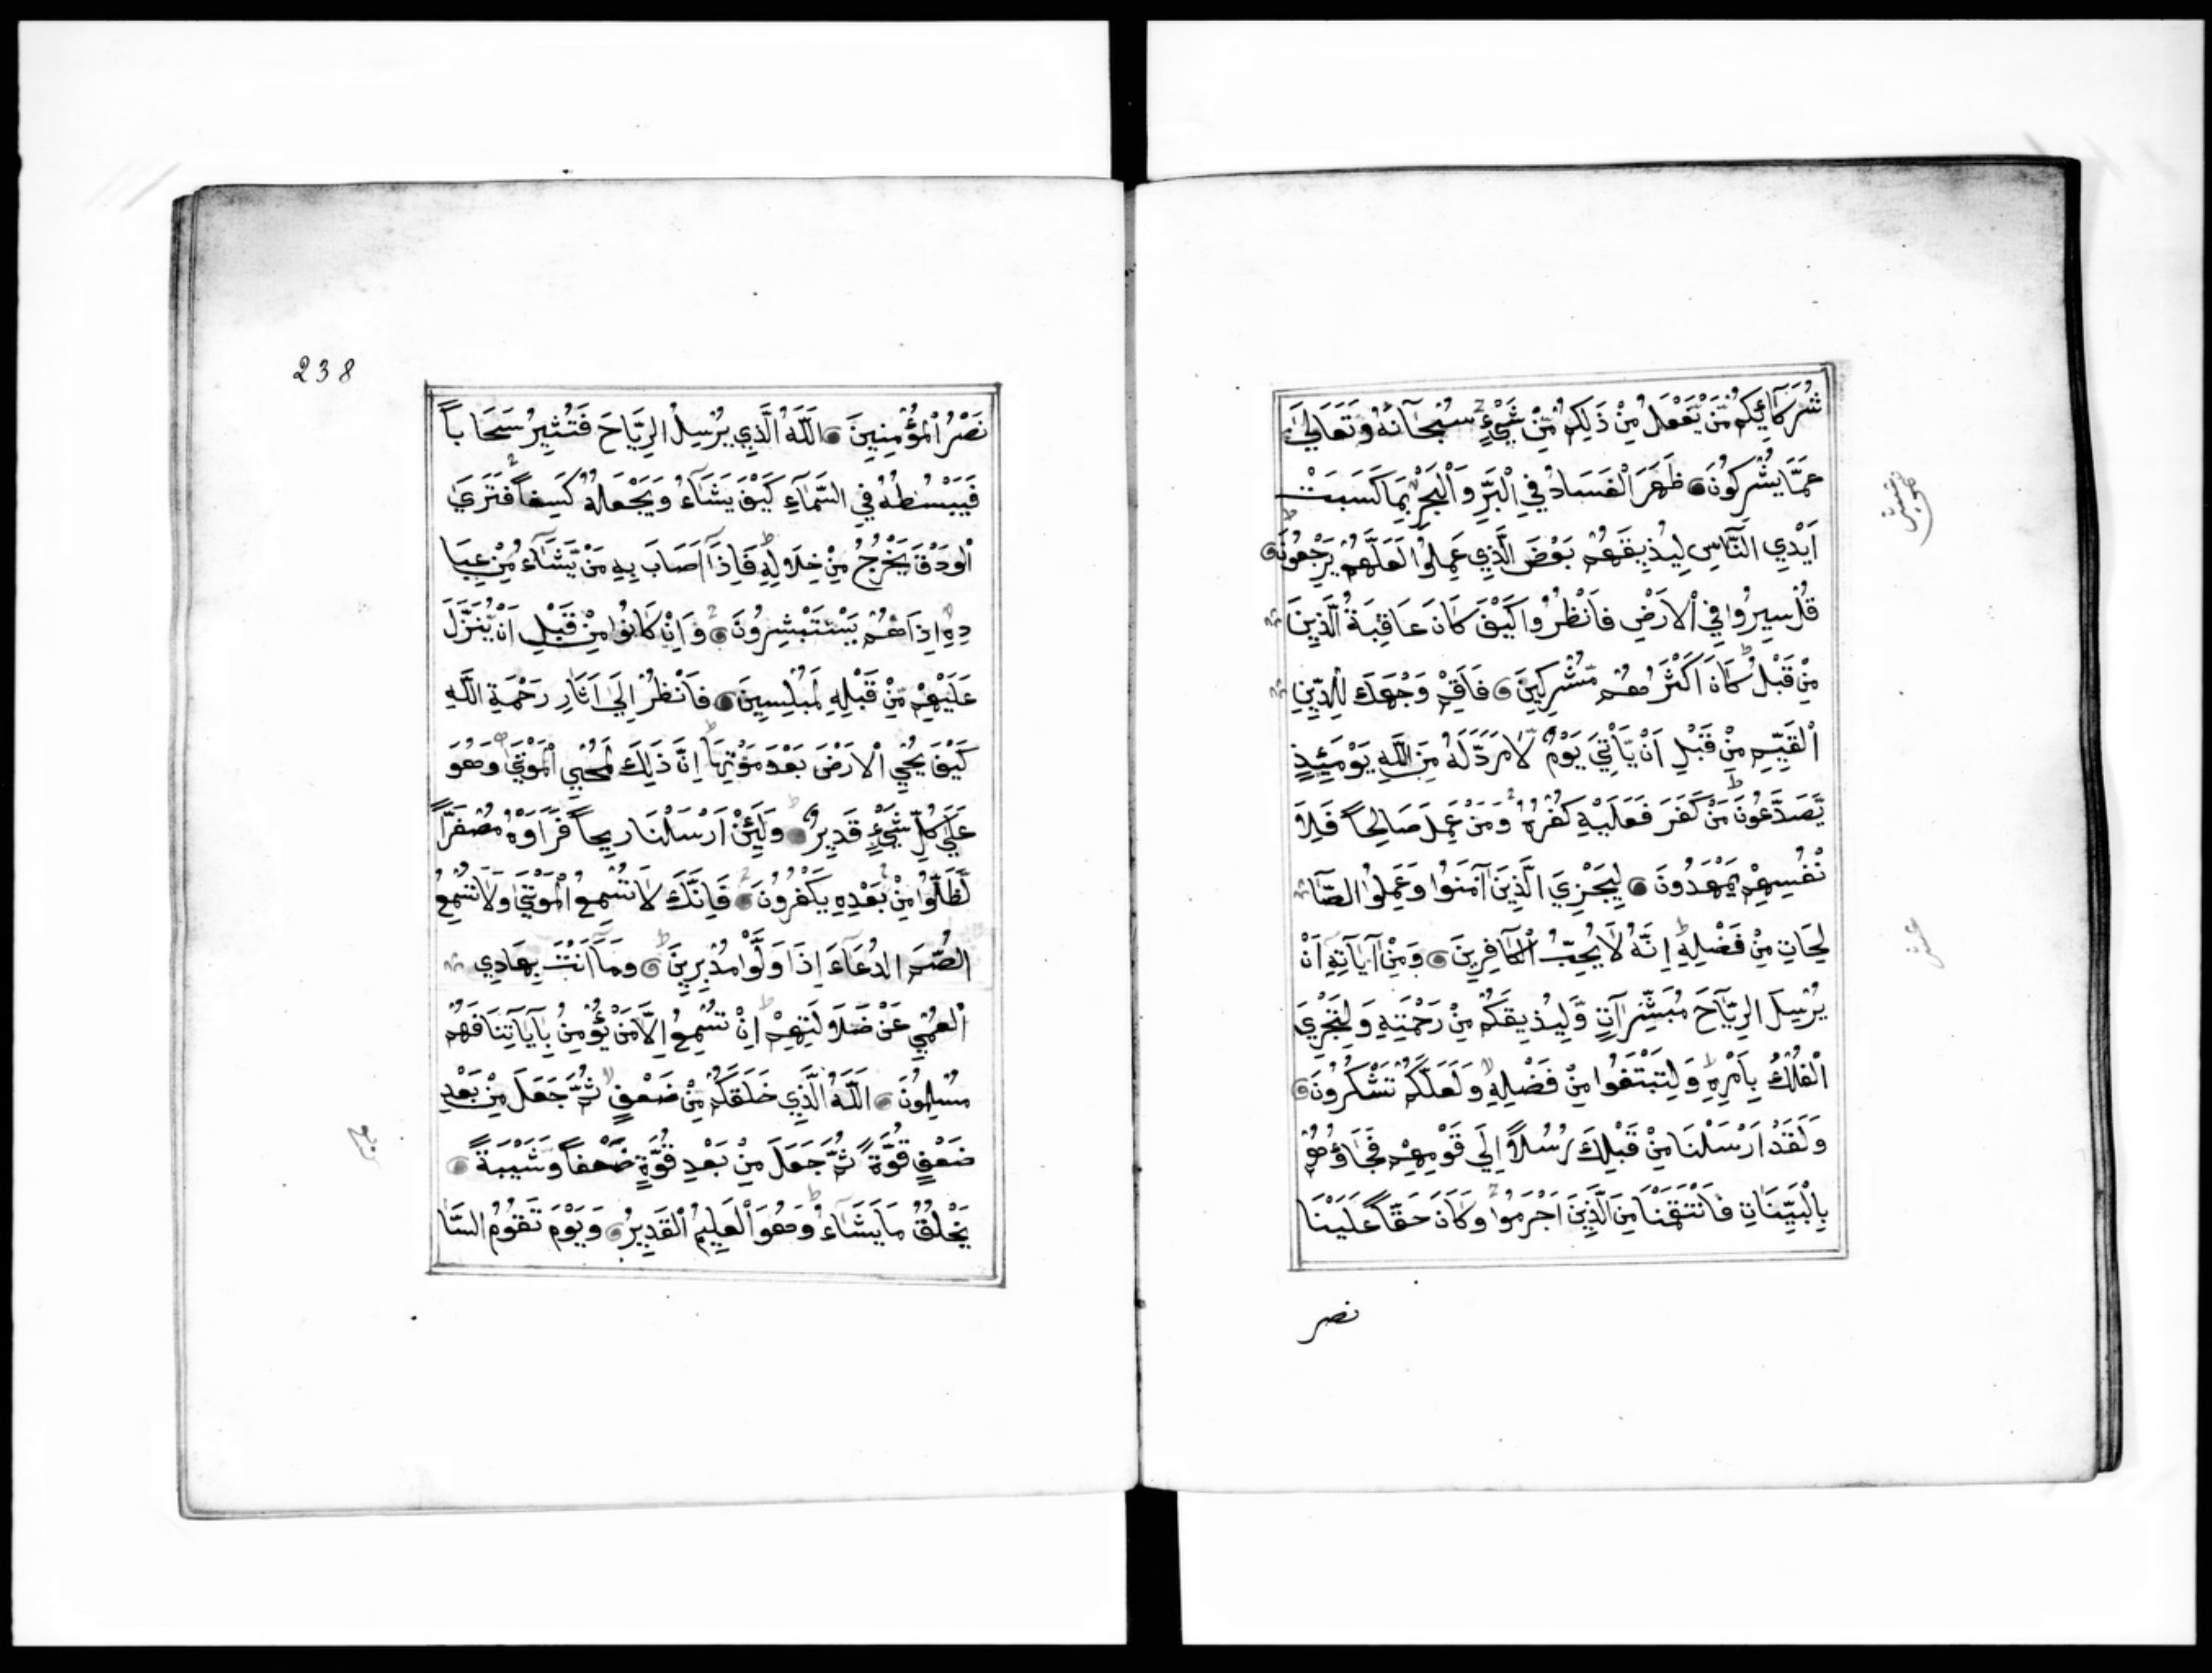 شُرَكَآئِكُمْ مَّنْ يَّفْعَلُ مِنْ ذَلِكُمْ مِّنْ شَيْءٍ سُبْحَانَهُ وَتَعَالَىٰ
عَمَّا يُشْرِكُونَ ظَهَرَ الْفَسَادُ فِي الْبَرِّ وَالْبَحْرِ بِمَا كَسَبَتْ
اَيْدِي النَّاسِ لِيُذِيقَهُمْ بَعْضَ الَّذِي عَمِلُوا لَعَلَّهُمْ يَرْجِعُونَ
قُلْ سِيرُوا فِي الْاَرْضِ فَانْظُرُوا كَيْفَ كَانَ عَاقِبَةُ الَّذِينَ
مِنْ قَبْلُ كَانَ اَكْثَرُهُمْ مُّشْرِكِينَ فَاَقِمْ وَجْهَكَ لِلدِّينِ
الْقَيِّمِ مِنْ قَبْلِ اَنْ يَّاْتِيَ يَوْمٌ لَّا مَرَدَّ لَهُ مِنَ اللَّهِ يَوْمَئِذٍ
يَّصَّدَّعُونَ مَنْ كَفَرَ فَعَلَيْهِ كُفْرُهُ وَمَنْ عَمِلَ صَالِحاً فَلِاَ
نْفُسِهِمْ يَمْهَدُونَ لِيَجْزِيَ الَّذِينَ آمَنُوا وَعَمِلُوا الصَّا
لِحَاتِ مِنْ فَضْلِهِ اِنَّهُ لَا يُحِبُّ الْكَافِرِينَ وَمِنْ آيَاتِهِ اَنْ
يُرْسِلَ الرِّيَاحَ مُبَشِّرَاتٍ وَّلِيُذِيقَكُمْ مِنْ رَحْمَتِهِ وَلِتَجْرِيَ
الْفُلْكُ بِاَمْرِهِ وَلِتَبْتَغُوا مِنْ فَضْلِهِ وَلَعَلَّكُمْ تَشْكُرُونَ
وَلَقَدْ اَرْسَلْنَا مِنْ قَبْلِكَ رُسُلاً اِلَى قَوْمِهِمْ فَجَاؤُهُمْ
بِالْبَيِّنَاتِ فَانْتَقَمْنَا مِنَ الَّذِينَ اَجْرَمُوا وَكَانَ حَقّاً عَلَيْنَا
نصر
238
نَصْرُ الْمُؤْمِنِينَ اَللَّهُ الَّذِي يُرْسِلُ الرِّيَاحَ فَتُثِيرُ سَحَاباً
فَيَبْسُطُهُ فِي السَّمَآءِ كَيْفَ يَشَآءُ وَيَجْعَلُهُ كِسَفاً فَتَرَى
الْوَدْقَ يَخْرُجُ مِنْ خِلَالِهِ فَاِذَا اَصَابَ بِهِ مَنْ يَّشَآءُ مِنْ عِبَا
دِهِ اِذَا هُمْ يَسْتَبْشِرُونَ وَاِنْ كَانُوا مِنْ قَبْلِ اَنْ يُّنَزَّلَ
عَلَيْهِمْ مِّنْ قَبْلِهِ لَمُبْلِسِينَ فَانْظُرْ اِلَى اَثَارِ رَحْمَةِ اللَّهِ
كَيْفَ يُحْيِ الْاَرْضَ بَعْدَ مَوْتِهَا اِنَّ ذَلِكَ لَمُحْيِي الْمَوْتَى وَهُوَ
عَلَى كُلِّ شَيْءٍ قَدِيرٌ وَلَئِنْ اَرْسَلْنَا رِيحاً فَرَاَوْهُ مُصْفَرّاً
لَّظَلُّوا مِنْ بَعْدِهِ يَكْفُرُونَ فَاِنَّكَ لَا تُسْمِعُ الْمَوْتَى وَلَا تُسْمِعُ
الصُّمَّ الدُّعَآءَ اِذَا وَلَّوْا مُدْبِرِينَ وَمَا اَنْتَ بِهَادِي
الْعُمْيِ عَنْ ضَلَالَتِهِمْ اِنْ تُسْمِعُ اِلَّا مَنْ يُؤْمِنُ بِآيَاتِنَا فَهُمْ
مُسْلِمُونَ اَللَّهُ الَّذِي خَلَقَكُمْ مِّنْ ضَعْفٍ ثُمَّ جَعَلَ مِنْ بَعْدِ
ضَعْفٍ قُوَّةً ثُمَّ جَعَلَ مِنْ بَعْدِ قُوَّةٍ ضَعْفاً وَشَيْبَةً
يَخْلُقُ مَا يَشَآءُ وَهُوَ الْعَلِيمُ الْقَدِيرُ وَيَوْمَ تَقُومُ السَّا